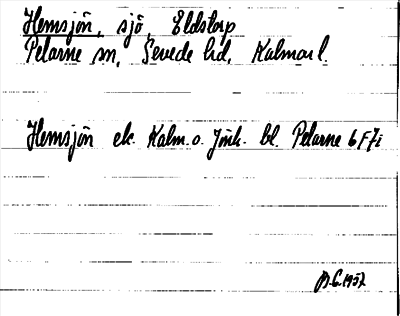 Hemsjön, sjö, Eldstorp
Pelarne sn, Sevede hd, Kalmar l.
Hemsjön ek. Kalm. o. Jönk. bl. Pelarne 6F7i
1957